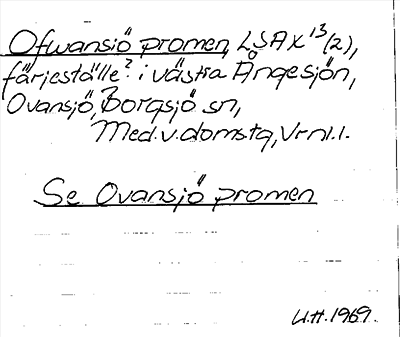 Ofwansiö promen, LSA X¹³(2),
färjeställe? i västra Ångesjön,
Ovansjö, Borgsjö sn,
Med.v.domstg, Vrnl.l.
Se Ovansjö promen
U.H. 1969.